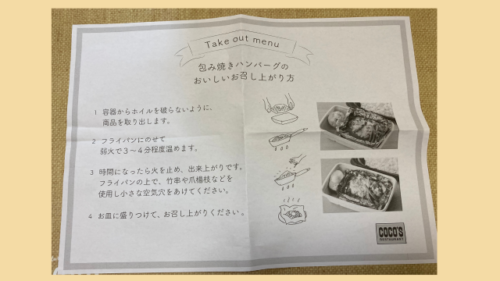 Take out menu
包み焼きハンバーグの
おいしいお召し上がり方
1 容器からホイルを破らないように、
商品を取り出します。
2 フライパンにのせて
弱火で3〜4分程度温めます。
3 時間になったら火を止め、出来上がりです。
フライパンの上で、竹串や爪楊枝などを
使用し小さな空気穴をあけてください。
4 お皿に盛りつけて、お召し上がりください。
COCO'S